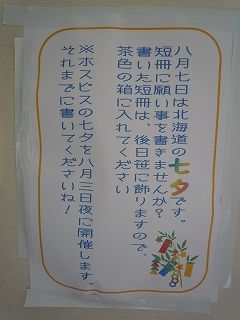 八月七日は北海道の七夕です。
短冊に願い事を書きませんか？
書いた短冊は、後日笹に飾りますので、
茶色の箱に入れてください
※ホスピスの七夕を八月三日夜に開催します。
それまでに書いてくださいね！